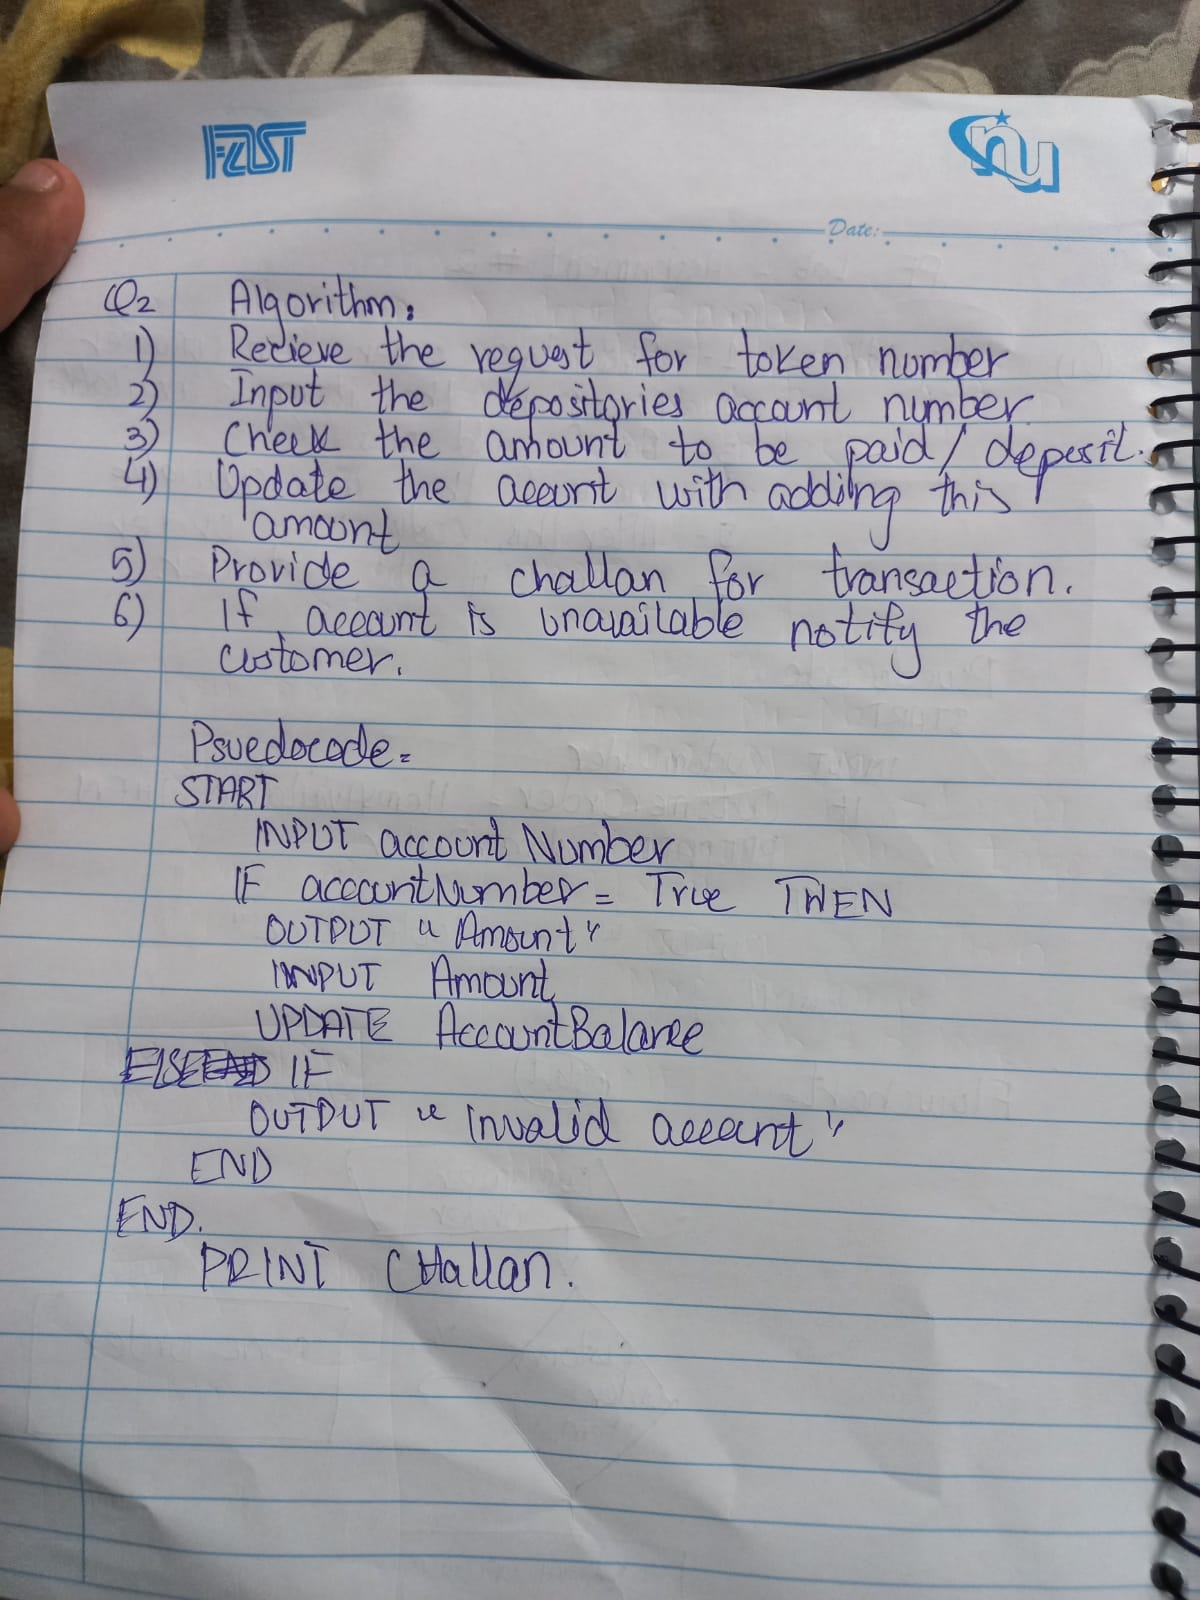 FAST
nu
Date:
Q2 Algorithm:
1) Recieve the request for token number
2) Input the depositories account number
3) Check the amount to be paid/deposit.
4) Update the account with adding this
amount
5) Provide a challan for transaction.
6) If account is unavailable notify the
customer.
Psuedocode =
START
INPUT account Number
IF accountNumber = True THEN
OUTPUT "Amount"
INPUT Amount
UPDATE AccountBalance
ELSE IF
OUTPUT "Invalid account"
END
END.
PRINT CHallan.